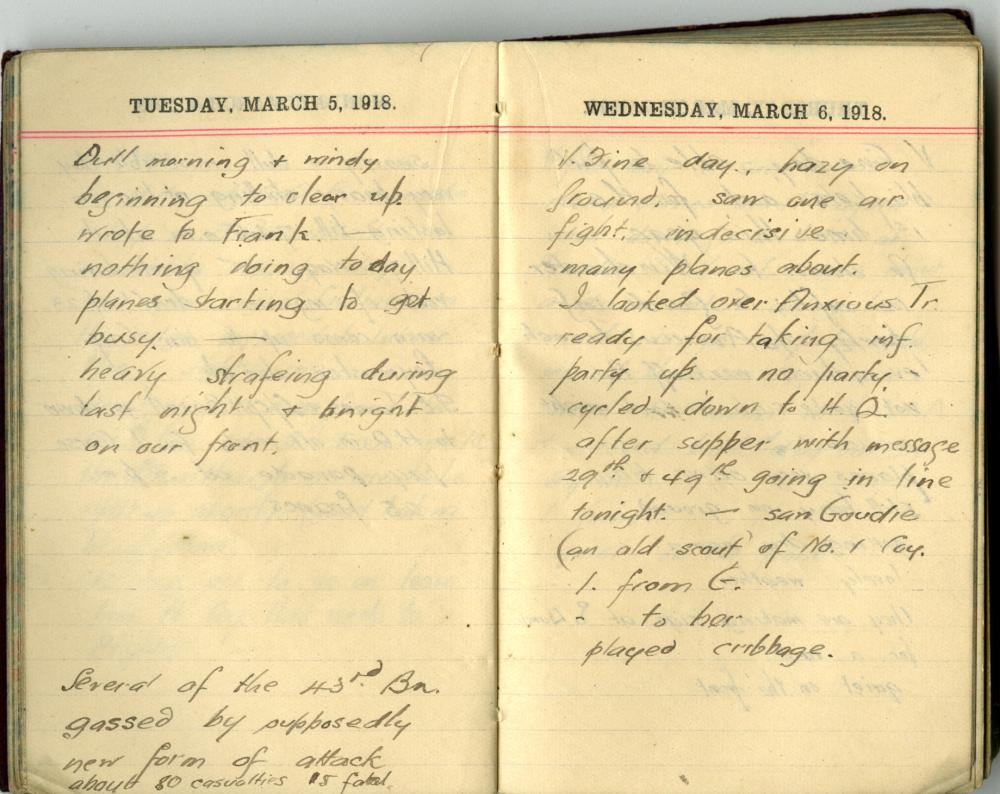 TUESDAY, MARCH 5, 1918.
Dull morning & windy
beginning to clear up.
wrote to Frank. —
nothing doing today
planes starting to get
busy. —
heavy strafeing during
last night & tonight
on our front.
Several of the 43rd Bn.
gassed by supposedly
new form of attack
about 80 casualties 15 fatal.
WEDNESDAY, MARCH 6, 1918.
V. Fine day, hazy on
ground. saw one air
fight, indecisive
many planes about.
I looked over Anxious Tr.
ready for taking inf.
party up. no party.
cycled down to H.Q.
after supper with message
29th & 49th going in line
tonight. — saw Goudie
(an old scout of No. 1 Coy.
1. from G.
" to her
played cribbage.